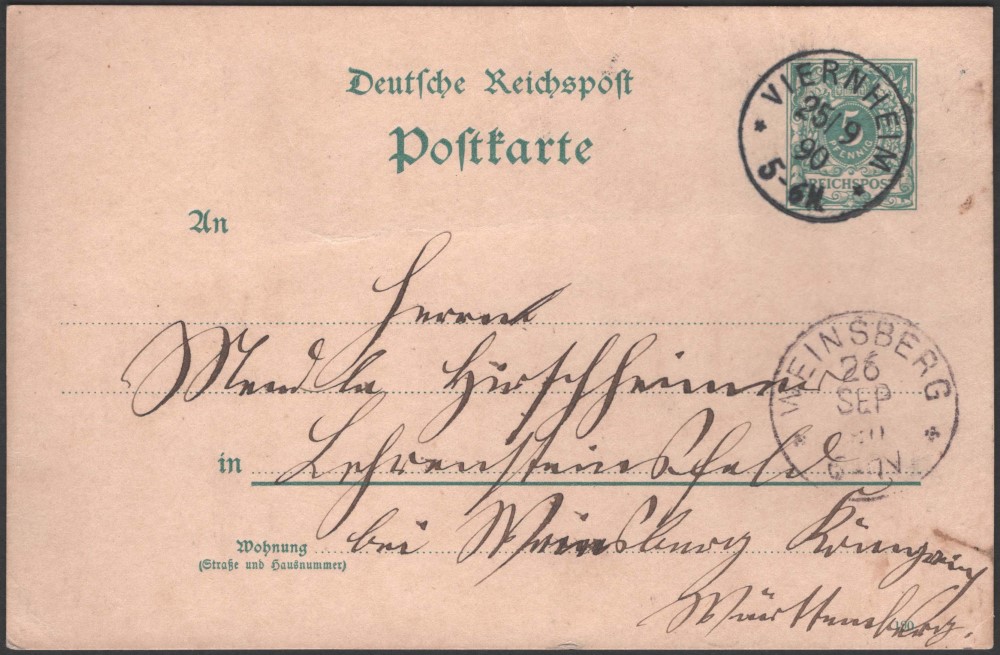 Deutsche Reichspost
Postkarte
VIERNHEIM
25/9
90
5-6N.
5
PFENNIG
REICHSPOST
An
Herrn
Mendle Hirschheimer
WEINSBERG
26
SEP
in Lehrensteinsfeld
Wohnung bei Weinsberg Königreich
(Straße und Hausnummer)
Württemberg.